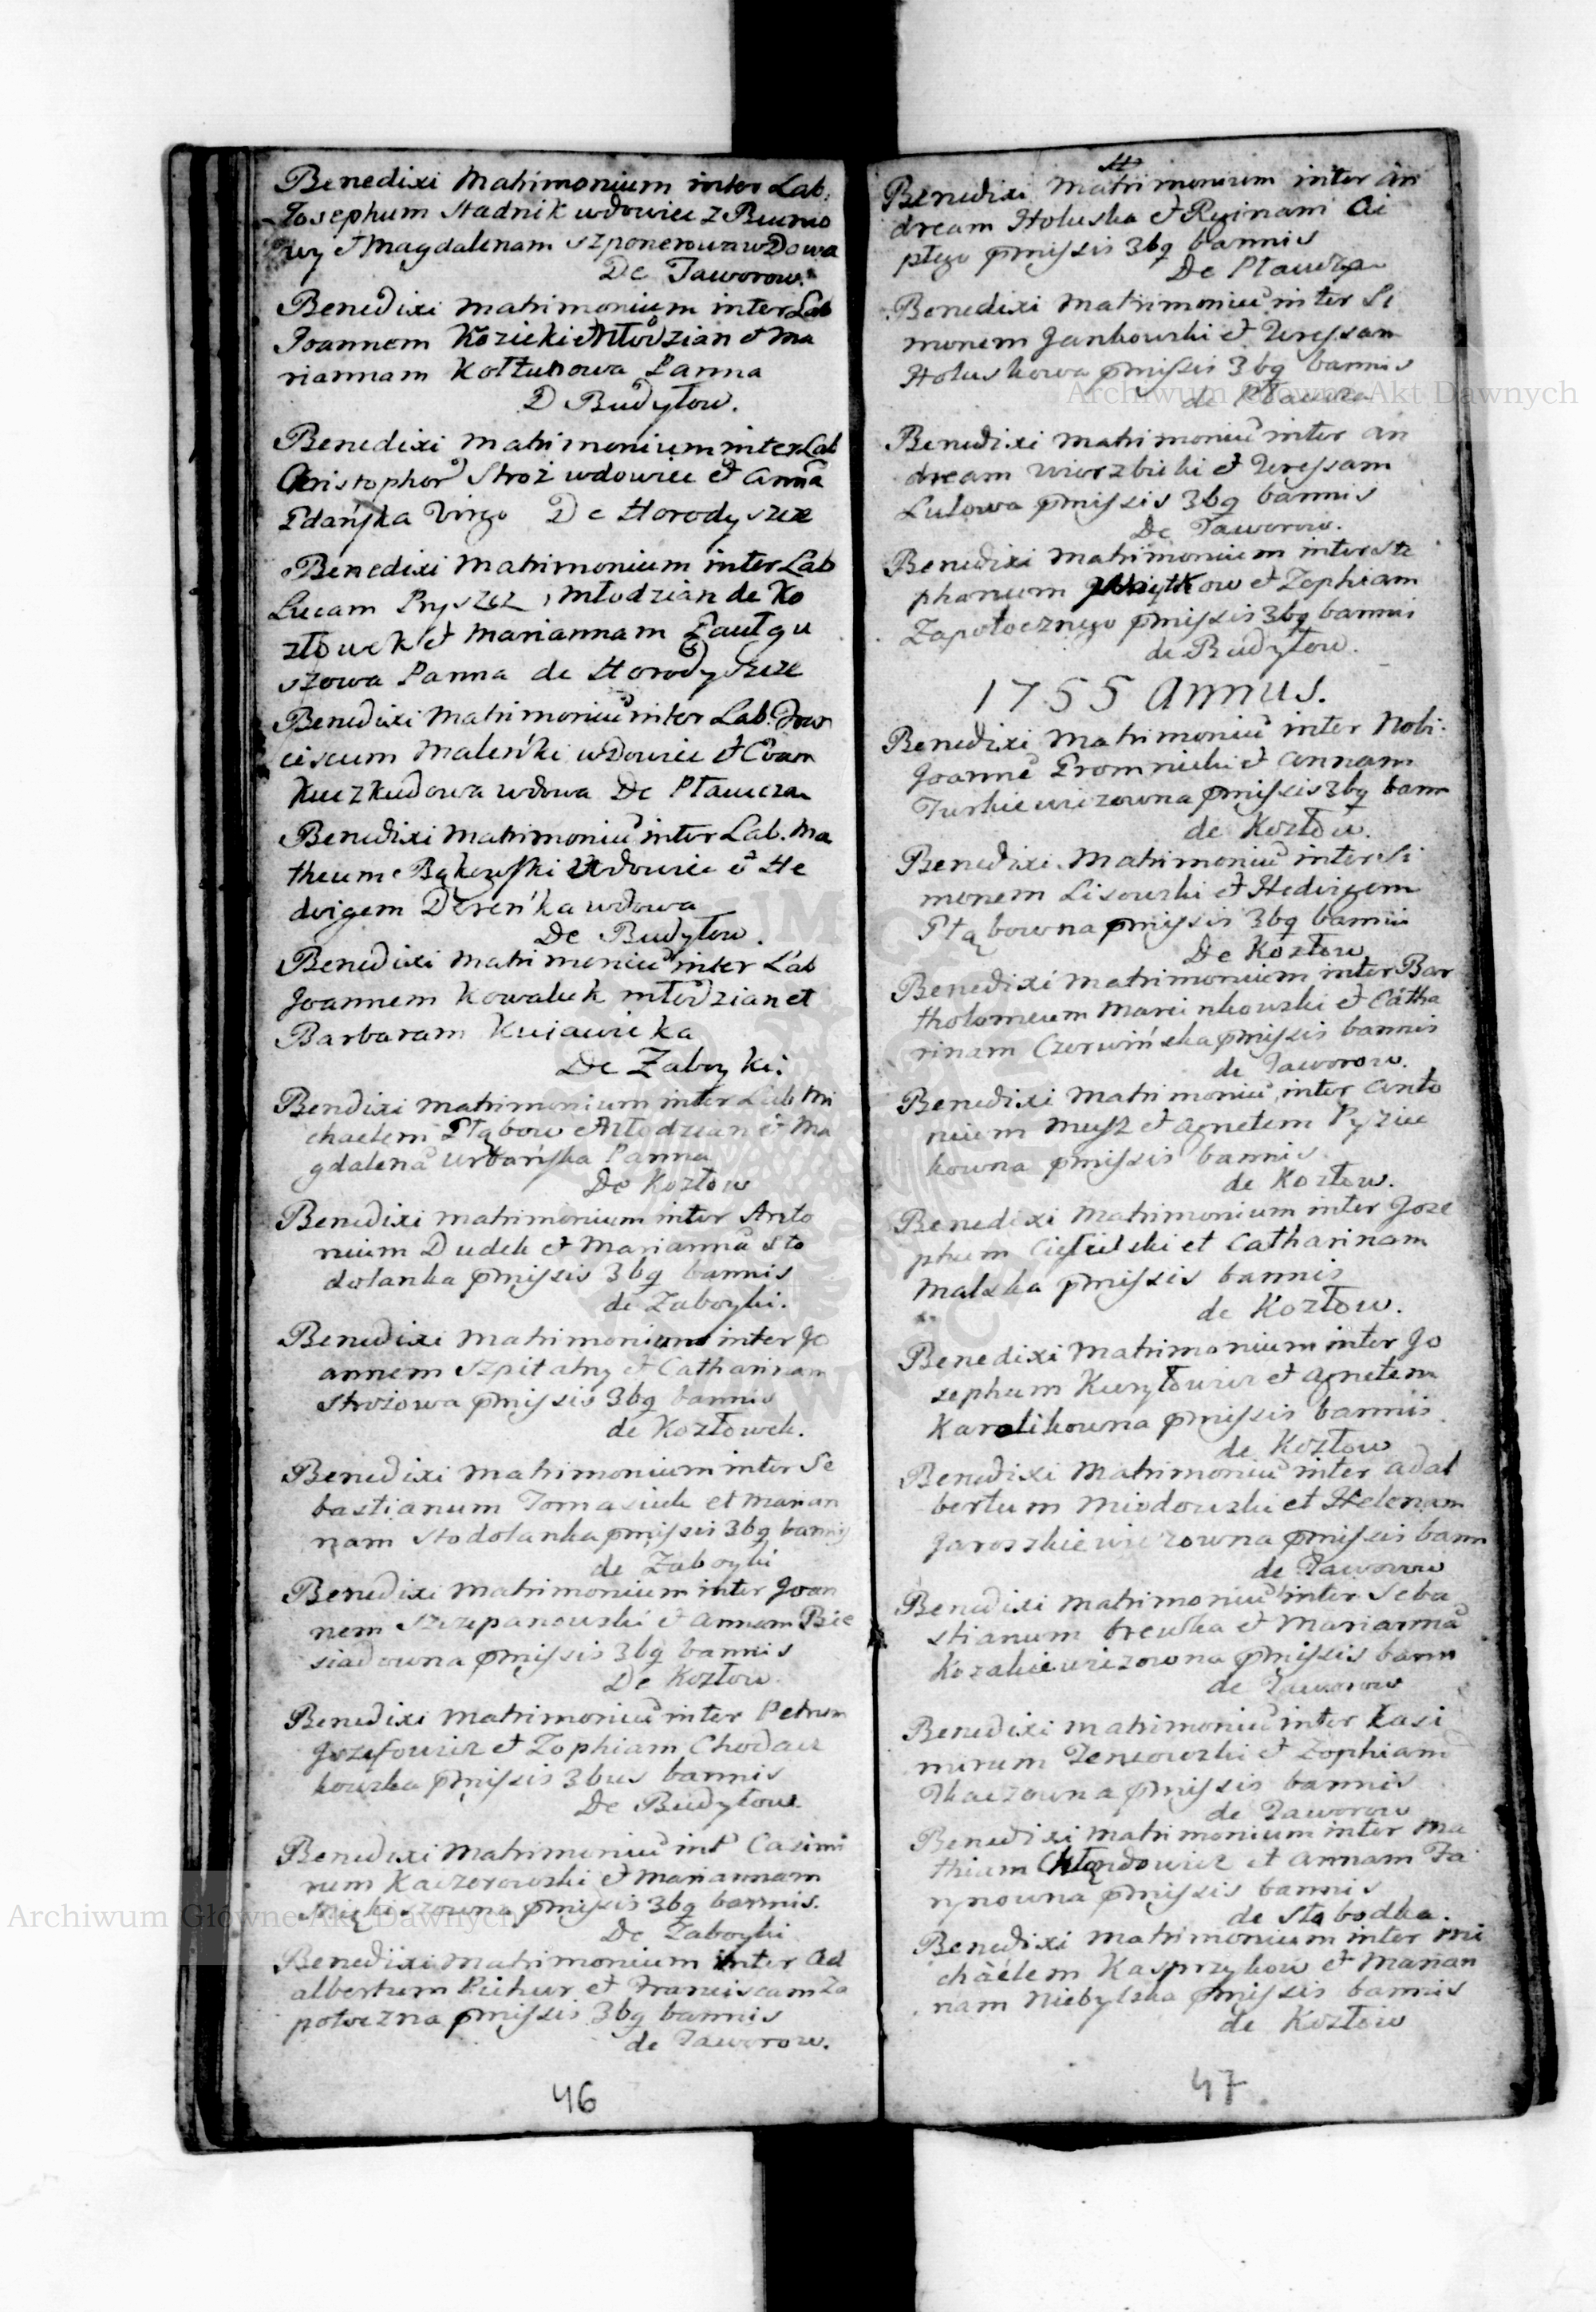 Benedixi Matrimonium inter Lab:
Josephum Stadnik wdowiec z
wy et Magdalenam Szponerowa wdowa
De Jaworow.
Benedixi Matrimonium inter Lab
Joannem Kozicki Młodzian et Ma
riannam Kołtunowa Panna
D Budyłow.
Benedixi Matrimonium inter Lab
Christophor Stroż wdowiec et Anna
Pdańska Virgo De Horodyszcze
Benedixi Matrimonium inter Lab
Lucam Pryszcz, Młodzian de Ko
złowek et Mariannam
szowa Panna de Horodyszcze
Benedixi Matrimoniu inter Lab.
ciscum Maleńki wdowiec et Evam
Kuczkudowa wdowa De Płaucza
Benedixi Matrimoniu inter Lab. Ma
theum Bąkowski Wdowiec et He
dvigem Dereńka wdowa
De Budyłow.
Benedixi Matrimoniu inter Lab
Joannem Kowaluk młodzian et
Barbaram Kuiawicka
De Zaboyki:
Bendixi Matrimonium inter Lab Mi
chaelem Ptąbow Młodzian et Ma
gdalena Urbańska Panna
De Kozłow
Benedixi Matrimonium inter Anto
nium Dudek et Marianna Sto
dolanka pmissis 3bq bannis
de Zaboyki.
Benedixi Matrimonium inter Jo
annem Szpitalny et Catharinam
Strożowa pmissis 3bq bannis
de Kozłowek.
Benedixi Matrimonium inter Se
bastianum Tomasiuk et Marian
nam Stodolanka pmissis 3bq bannis
de Zaboyki
Benedixi Matrimonium inter Joan
nem Szczepanowski et Annam Bie
siadowna pmissis 3bq bannis
De Kozłow
Benedixi Matrimoniu inter Petrum
Jozefowicz et Zophiam Chodacz
kowska pmissis 3bus bannis
De Budyłow.
Benedixi Matrimoniu int Casimi
rum Kaczorowski et Mariannam
pmissis 3bq bannis.
De Zaboyki
Benedixi Matrimonium inter Ad
albertum Pichur et Franciscam Za
potoczna pmissis 3bq bannis
de Jaworow.
46
Benedixi Matrimonium inter An
dream Holuska et Reginam Ci
płego pmissis 3bq bannis
De Płaucza
Benedixi Matrimoniu inter Si
monem Jankowski et Teressam
Holuskowa pmissis 3bq bannis
de Płaucza
Benedixi Matrimoniu inter An
dream Wierzbicki et Teressam
Lulowa pmissis 3bq bannis
De Jaworow.
Benedixi Matrimonium inter Ste
phanum et Zophiam
Zapotocznego pmissis 3bq bannis
de Budyłow.
1755 Annus.
Benedixi Matrimoniu inter Nobi:
Joanne Promnicki et Annam
Turkiewiczowna pmissis 3bq bann
de Kozłow.
Benedixi Matrimoniu inter Si
monem Lisowski et Hedvigem
Ptąbowna pmissis 3bq bannis
De Kozłow
Benedixi Matrimonium inter Bar
tholomeum Marcinkowski et Catha
rinam Czerwińska pmissis bannis
de Jaworow.
Benedixi Matrimoniu inter Anto
nium Musz et Agnetem Pysiec
kowna pmissis bannis
de Kozłow.
Benedixi Matrimonium inter Jose
phum Ciesielski et Catharinam
Malska pmissis bannis
de Kozłow.
Benedixi Matrimonium inter Jo
sephum Kuryłowicz et Agnetem
Karolikowna pmissis bannis
de Kozłow
Benedixi Matrimoniu inter Adal
bertum Miodowski et Helenam
Jaroszkiewiczowna pmissis bann
de Jaworow
Benedixi Matrimoniu inter Seba
stianum et Marianna
Kozakiewiczowna pmissis bann
de Jaworow
Benedixi Matrimoniu inter Kasi
mirum Tenerowski et Zophiam
Tkaczowna pmissis bannis
de Jaworow
Benedixi Matrimonium inter Ma
thiam Chłąndowicz et Annam Ja
nnowna pmissis bannis
de Słobodka.
Benedixi Matrimonium inter Mi
chaelem Kasprzykow et Marian
nam Niebylska pmissis bannis
de Kozłow
47
Archiwum Główne Akt Dawnych
Archiwum Główne Akt Dawnych